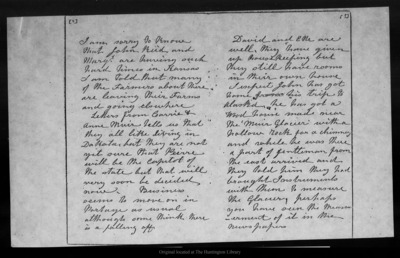 I am sorry to know
that John Reid and
Mary are having such
hard times in Kansas
I am told that many
of the Farmers about there
are leaving their Farms
and going elsewhere
Letters from Carrie &
Anna Muir tells us that
they all like living in
Dakota, but they are not
yet sure that Pierre
will be the Capitol of
the state but that will
very soon be decided
now. Business
seems to move on in
Portage as usual
although some think there
is a falling off,
David and Ette are
well, they have given
up housekeeping but
they still have rooms
in their own house
I expect John has got
home from his trip to
Alaska, he has got a
Wood home made near
the "Muir Glacier" with a
hollow rock for a chimney
and while he was there
a part of gentlemen from
the east arrived and
they told him they had
brought instruments
with them to measure
the Glacier, perhaps
you have seen the Measu-
rement of it in the
News papers
Original located at The Huntington Library